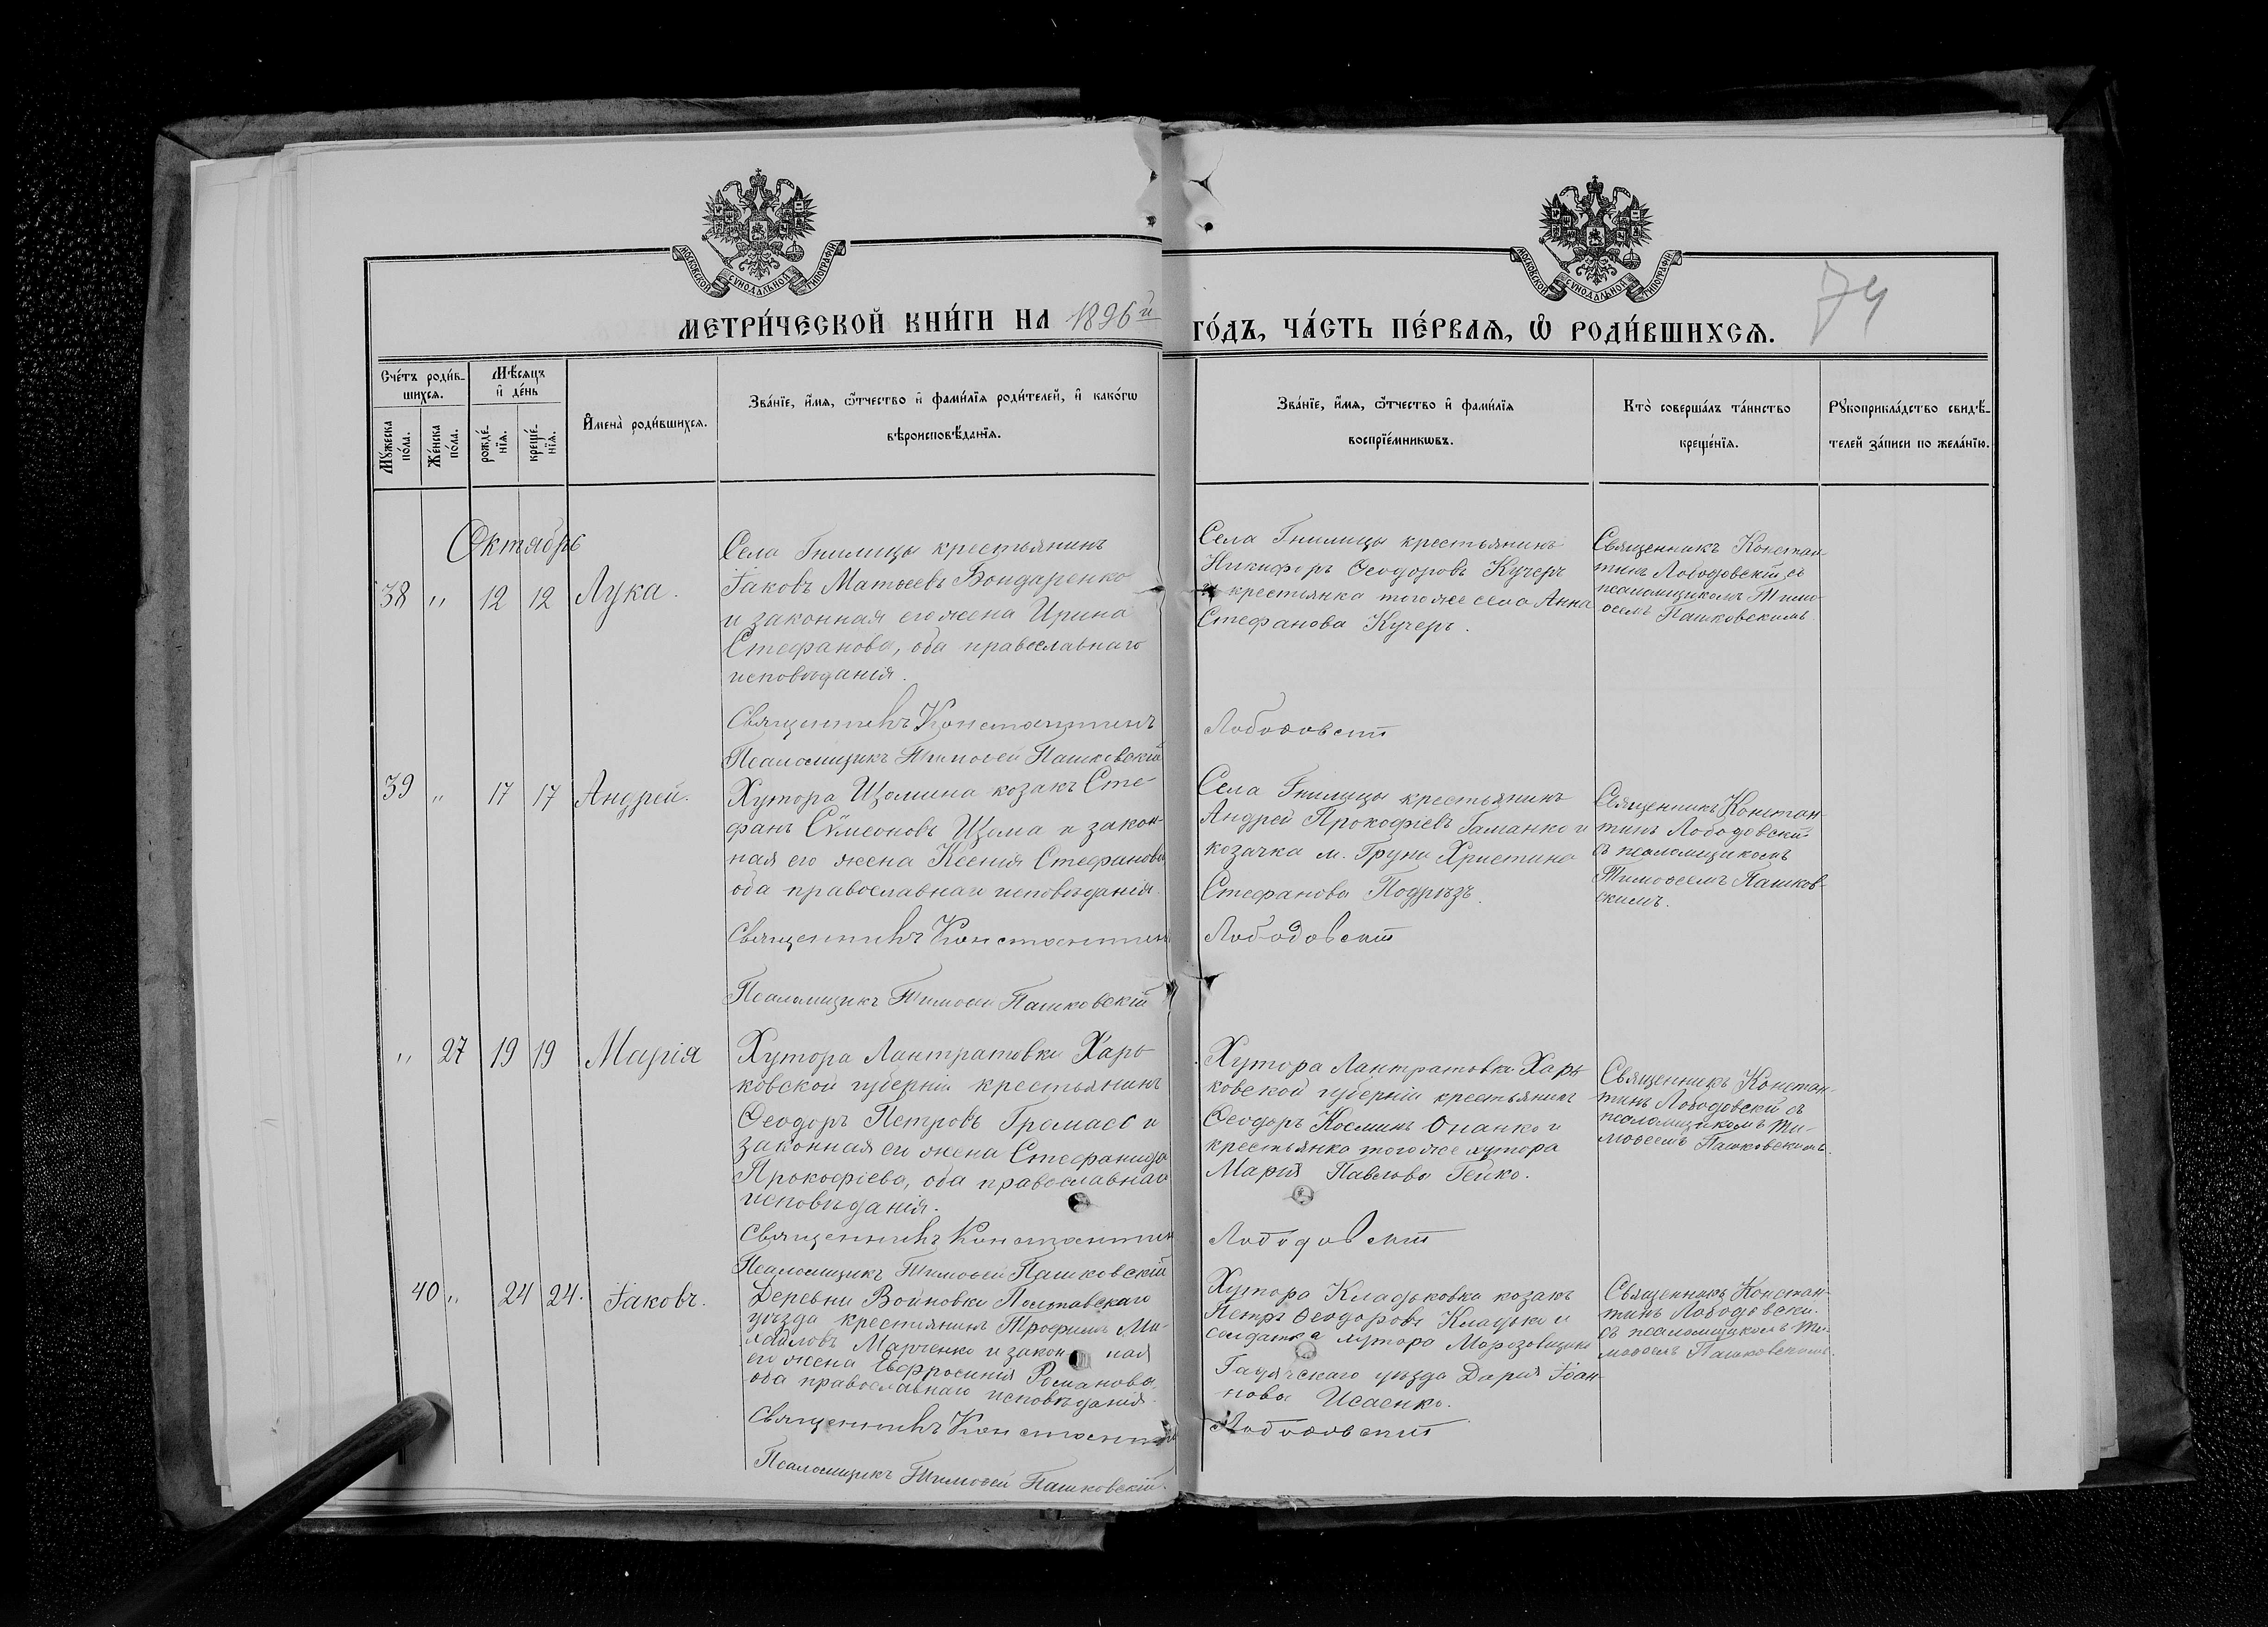 МОСКОВСКОЙ СѴНОДАЛЬНОЙ ТИПОГРАФІИ
МОСКОВСКОЙ СѴНОДАЛЬНОЙ ТИПОГРАФІИ
74
МЕТРИ́ЧЕСКОЙ КНИ́ГИ НА 1896й
ГО́ДЪ, ЧА́СТЬ ПЕ́РВАѦ, Ѡ҆ РОДИ́ВШИХСѦ.
Сче́тъ роди́в-
шихсѧ.
Мꙋ́жеска по́ла.
Же́нска по́ла.
Мѣ́сѧцъ
и҆ де́нь
рожде́-
нїѧ.
креще́-
нїѧ.
И҆мена̀ роди́вшихсѧ.
Зва́нїе, и҆́мѧ, ѻ҆́тчество и҆ фами́лїѧ роди́телей, и҆ како́гѡ
вѣроисповѣ́данїѧ.
Зва́нїе, и҆́мѧ, ѻ҆́тчество и҆ фами́лїѧ
воспрїе́мникѡвъ.
Кто̀ соверша́лъ та́инство
креще́нїѧ.
Рꙋкоприкла́дство свидѣ́-
телей за́писи по жела́нїю.
Октябрь
38 " 12 12 Лука.
Села Гнилицы крестьянинъ
Іаковъ Матѳеевъ Бондаренко
и законная его жена Ирина
Стефанова, оба православнаго
исповѣданія.
Священникъ Константинъ
Псаломщикъ Тимоѳей Пашковскій
Села Гнилицы крестьянинъ
Никифоръ Ѳеодоровъ Кучеръ
и крестьянка того же села Анна
Стефанова Кучеръ.
Лободовскій
Священникъ Констан-
тинъ Лободовскій съ
псаломщикомъ Тимо-
ѳеемъ Пашковскимъ
39 " 17 17 Андрей.
Хутора козакъ Сте-
фанъ Сѵмеоновъ и закон-
ная его жена Ксенія Стефанова
оба православнаго исповѣданія.
Священникъ Константинъ
Псаломщикъ Тимоѳей Пашковскій
Села Гнилицы крестьянинъ
Андрей Прокофіевъ Гаманко и
козачка м. Груни Христина
Стефанова Подрѣзъ.
Лободовскій
Священникъ Констан-
тинъ Лободовскій
съ псаломщикомъ
Тимоѳеемъ Пашков-
скимъ.
" 27 19 19 Марія
Хутора Лантратовки Харь-
ковской губерніи крестьянинъ
Ѳеодоръ Петровъ и
законная его жена Стефанида
Прокофіева, оба православнаго
исповѣданія.
Священникъ Константин
Псаломщикъ Тимоѳей Пашковскій
Хутора Лантратовки Харь-
ковской губерніи крестьянинъ
Ѳеодоръ Косминъ Опанко и
крестьянка того же хутора
Марія Павлова Гейко.
Лободовскій
Священникъ Констан-
тинъ Лободовскій съ
псаломщикомъ Ти-
моѳеемъ Пашковскимъ.
40 " 24 24. Іаковъ.
Деревни Войновки Полтавскаго
уѣзда крестьянинъ Трофимъ Ми-
хайловъ Марченко и законная
его жена Евфросинія Романова,
оба православнаго исповѣданія.
Священникъ Константин
Псаломщикъ Тимоѳей Пашковскій.
Хутора Кладьковка козакъ
Петръ Ѳеодоровъ Кладько и
солдатка хутора Морозовщины
Гадячскаго уѣзда Дарія Іоан-
нова Исаенко.
Лободовскій
Священникъ Констан-
тинъ Лободовскій
съ псаломщикомъ Ти-
моѳеемъ Пашковскимъ.